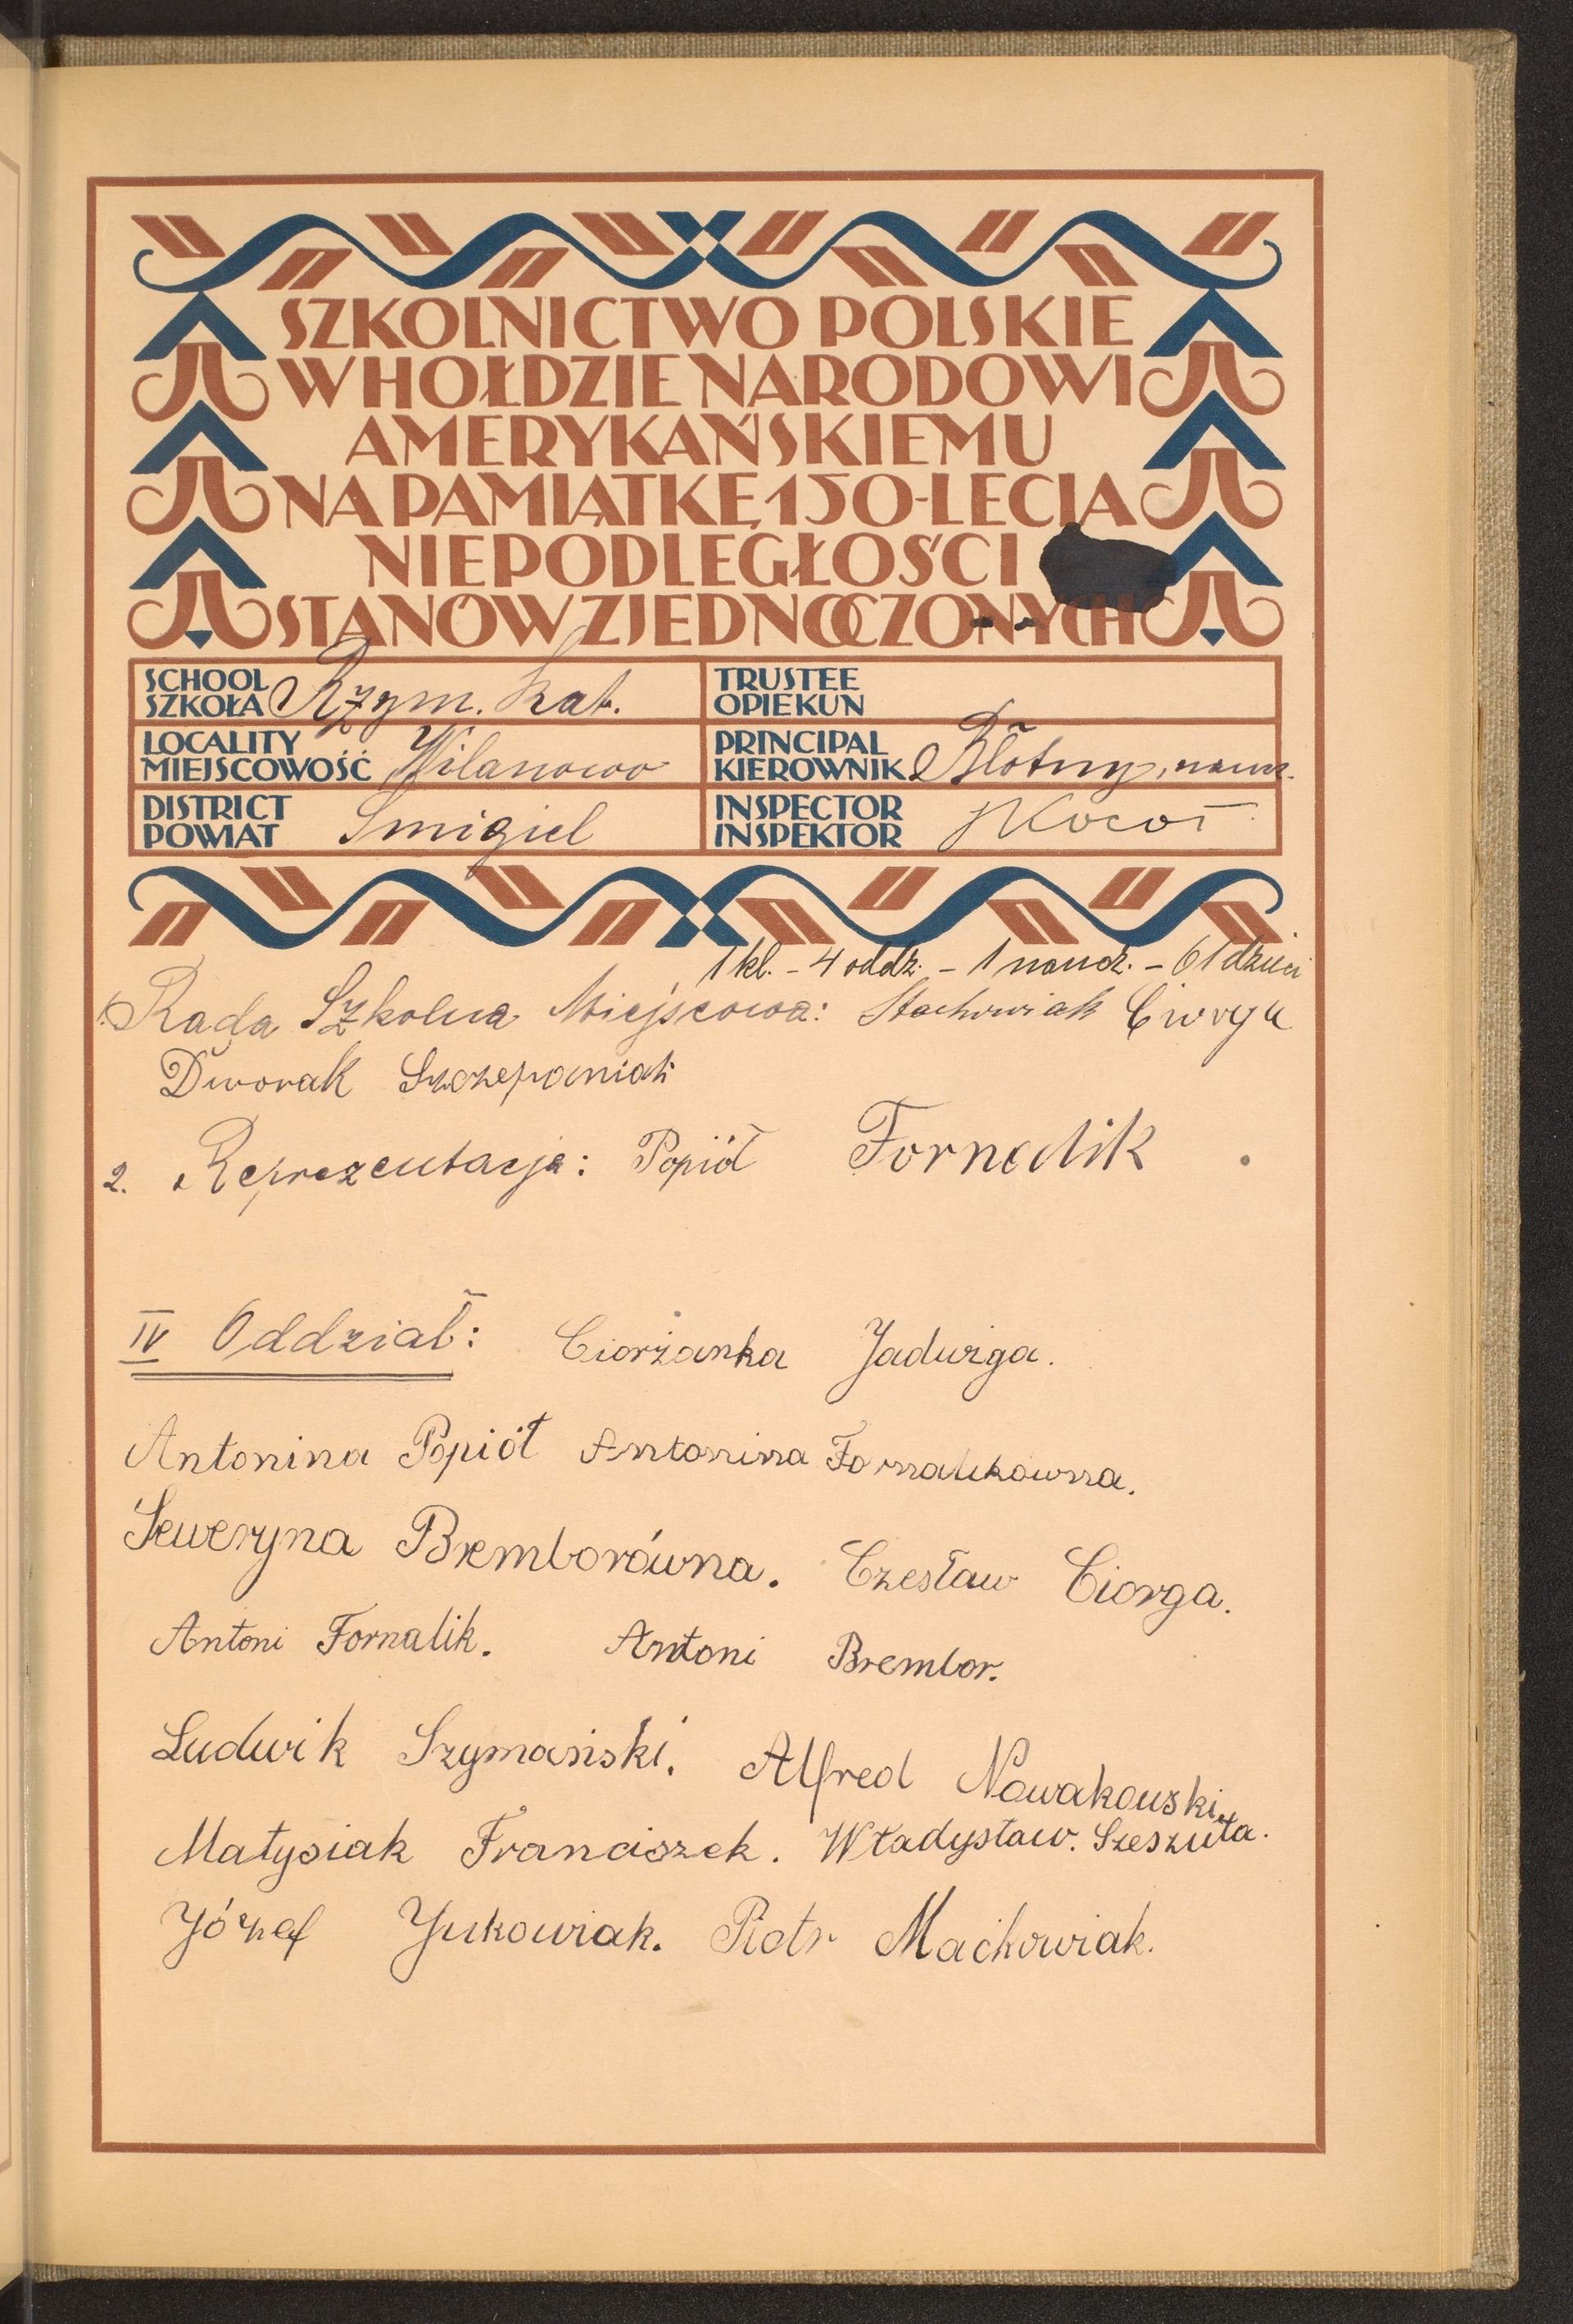 SZKOLNICTWO POLSKIE
W HOŁDZIE NARODOWI
AMERYKAŃSKIEMU
NA PAMIĄTKĘ 150-LECIA
NIEPODLEGŁOŚCI
STANÓW ZJEDNOCZONYCH
SCHOOL
SZKOŁA Rzym. kat.
TRUSTEE
OPIEKUN
LOCALITY
MIEJSCOWOŚĆ Wilanowo
PRINCIPAL
KIEROWNIK Błotny, naucz.
DISTRICT
POWIAT Smigiel
INSPECTOR
INSPEKTOR Kocoł
1 kl. - 4 oddz. - 1 naucz. - 61 dzieci
1. Rada Szkolna Miejscowa: Stachowiak Ciorga
Dworak Szczepaniak
2. Reprezentacja: Popiół Fornalik
IV Oddział: Ciorżanka Jadwiga.
Antonina Popiół Antonina Fornalikowna.
Seweryna Bremborówna. Czesław Ciorga.
Antoni Fornalik. Antoni Brembor.
Ludwik Szymański. Alfred Nowakowski.
Matysiak Franciszek. Władysław. Szeszuła.
Józef Jukowiak. Piotr Maćkowiak.